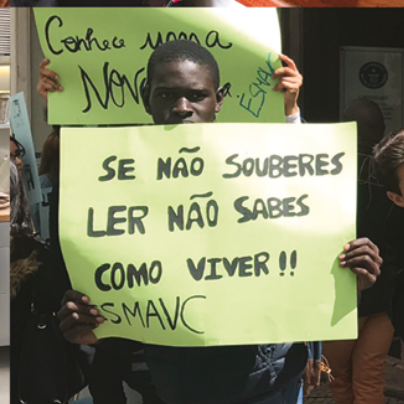 Conhece
NOV
ESMAV
SE NÃO SOUBERES
LER NÃO SABES
COMO VIVER!!
ESMAVC